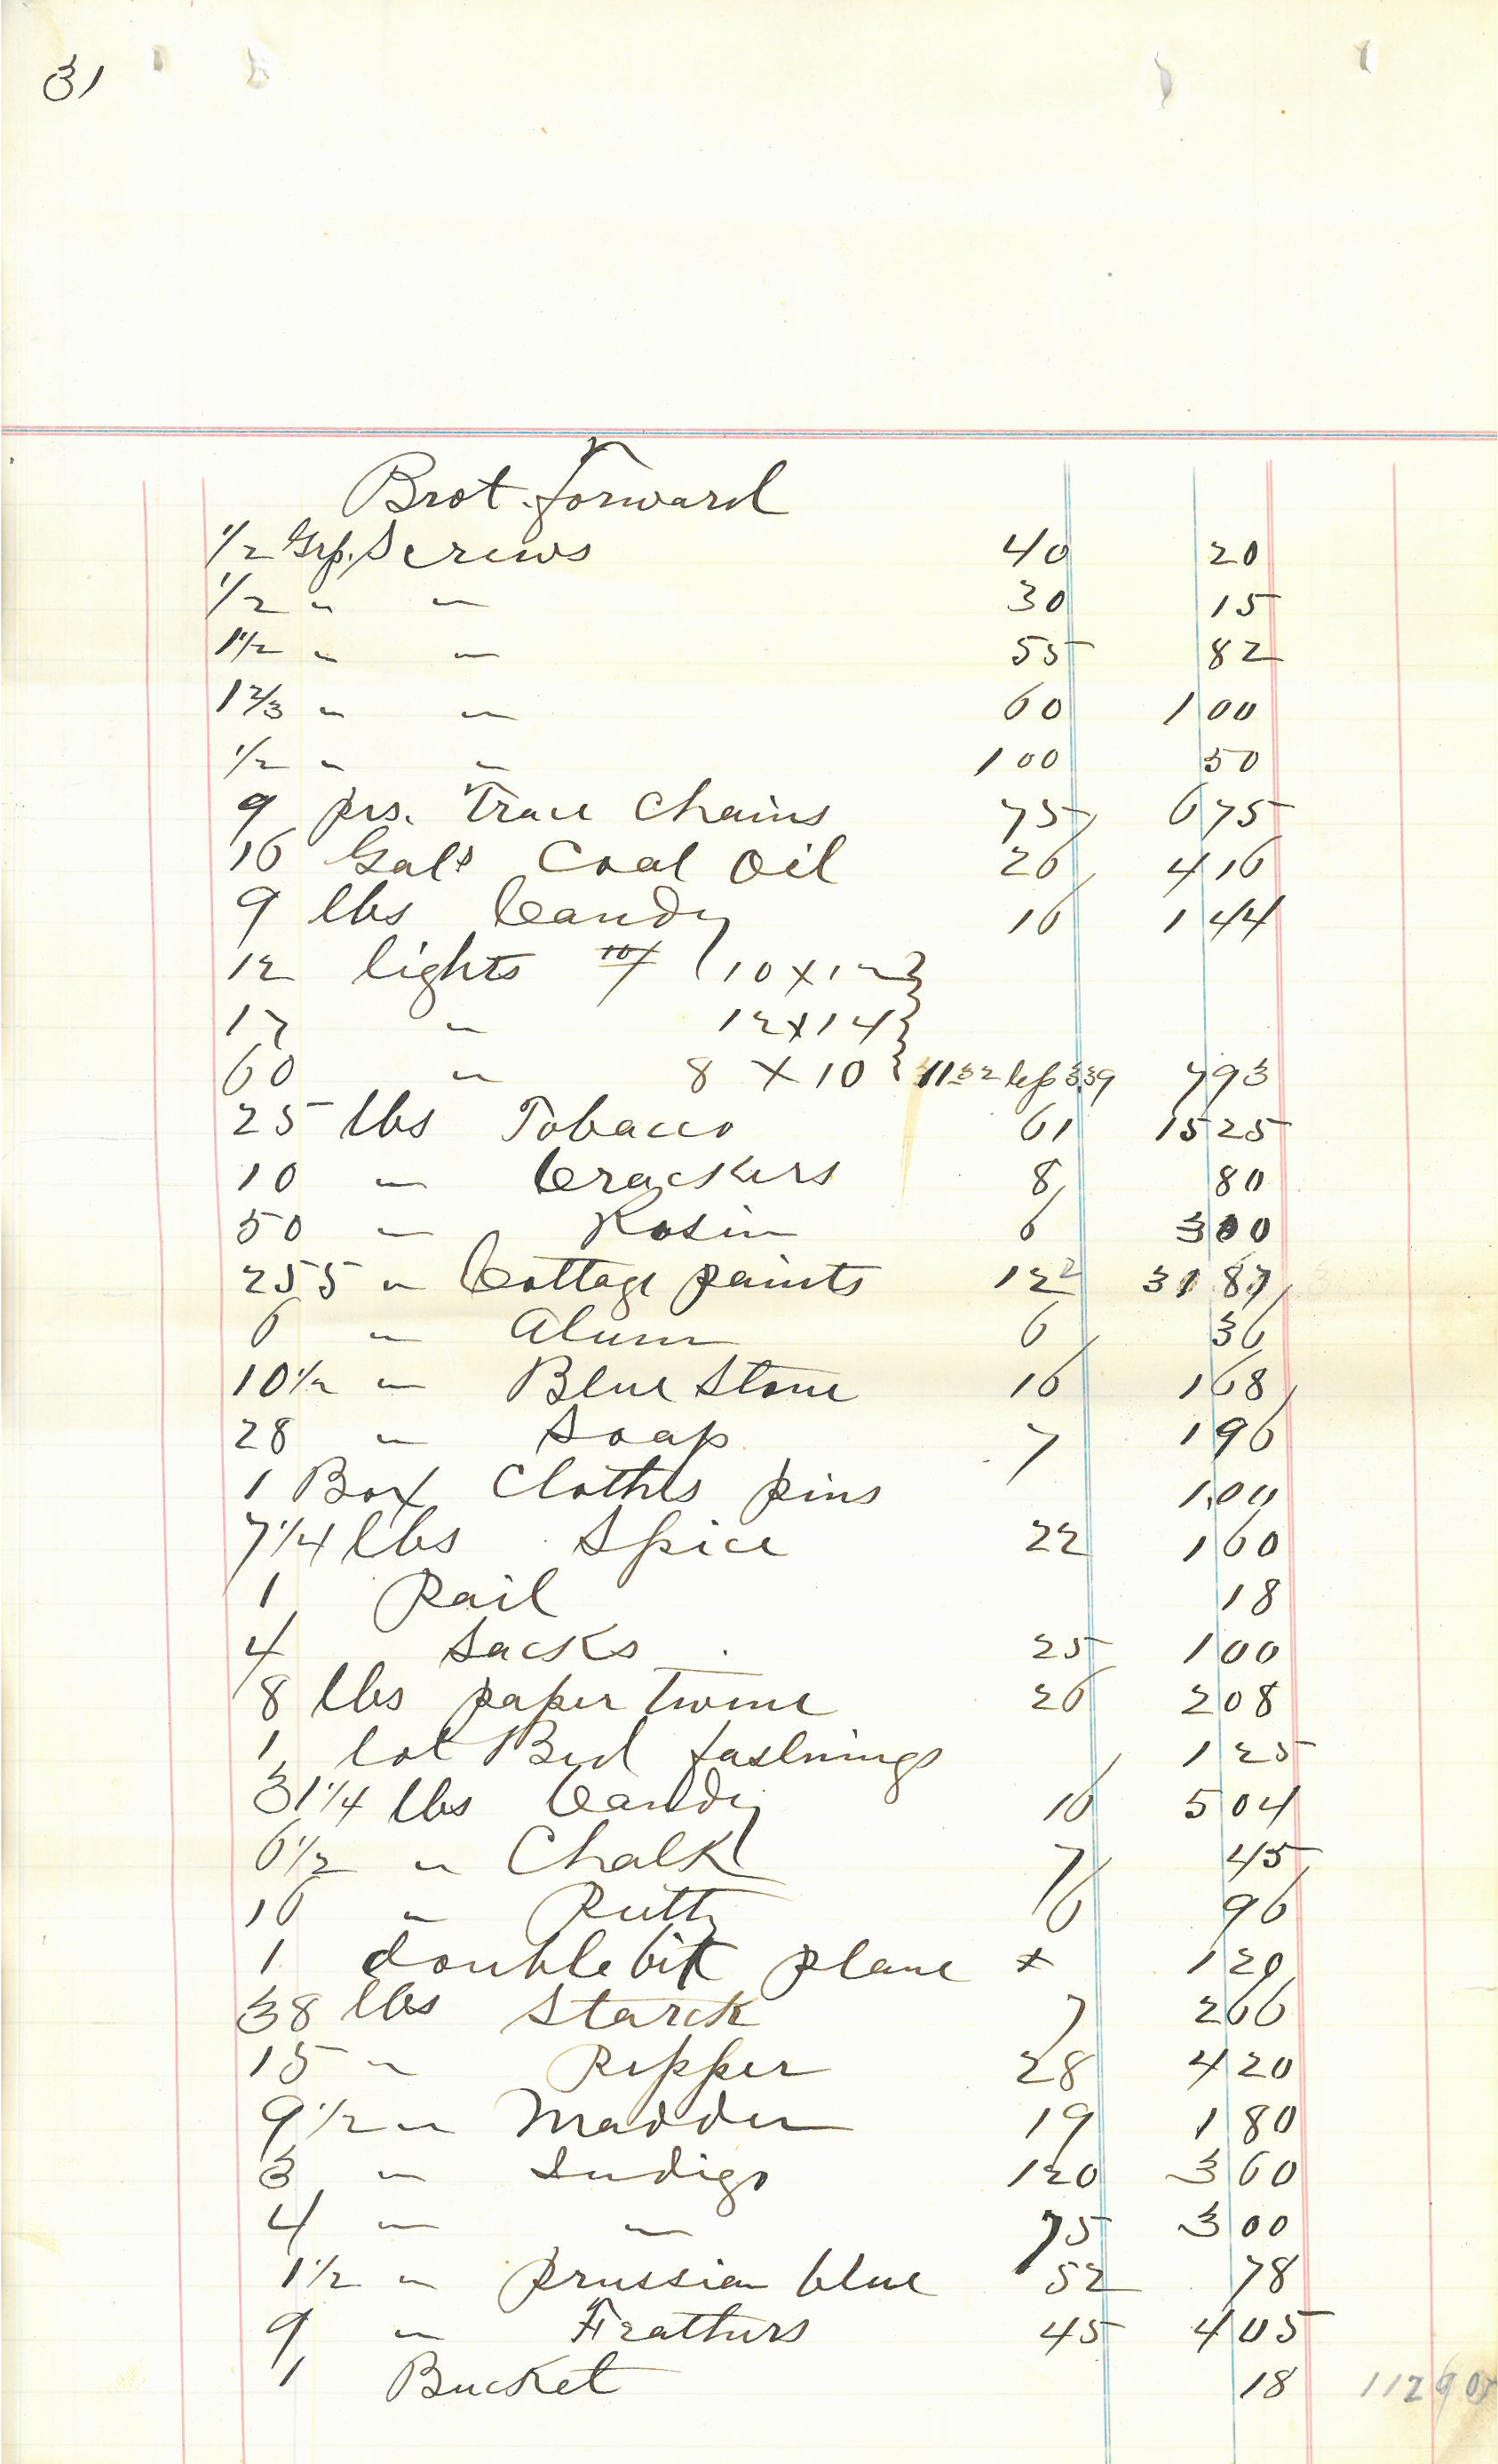 31
Brot. forward
1/2 Gro. Screws 40 20
1/2 " " 30 15
1 1/2 " " 55 82
1 2/3 " " 60 100
1/2 " " 100 50
9 prs. Trace Chains 75 675
16 Gals Coal Oil 26 416
9 lbs Candy 16 144
12 lights (10 x 12 }
17 " 12 x 14 }
60 " 8 x 10 } 1132 less 339 793
25 lbs Tobacco 61 1525
10 " Crackers 8 80
50 " Rosin 6 300
255 " Cottage paints 12 2 3187
6 " Alum 6 36
10 1/2 " Blue Stone 16 168
28 " Soap 7 196
1 Box Clothes pins 100
7 1/4 lbs Spice 22 160
1 Pail 18
4 Sacks 25 100
8 lbs paper Twine 26 208
1 lot Bed fastnings 125
31 1/4 lbs Candy 16 504
6 1/2 " Chalk 7 45
16 " Putty 6 96
1 double bit plane x 120
38 lbs Starch 7 266
15 " Pepper 28 420
9 1/2 " Madder 19 180
3 " Indigo 120 360
4 " " 75 300
1 1/2 " prussian blue 52 78
9 " Feathers 45 405
1 Bucket 18 112905